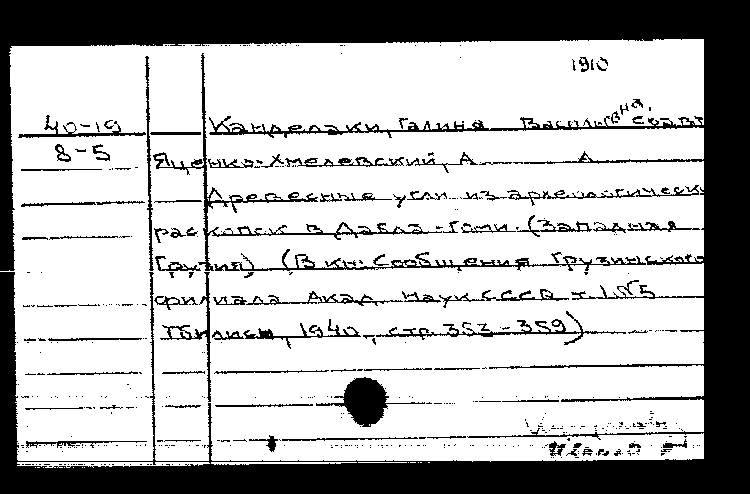 1910
40-19 Канделаки, Галина Васильевна, соавт
8-5 Яценко-Хмелевский, А А
Древесные угли из археологически
раскопок в Дабла-Гоми. (Западная
Грузия) (В кн: Сообщения Грузинского
филиала Акад. Наук СССР т 1. №5
Тбилиси, 1940, стр 353-359)